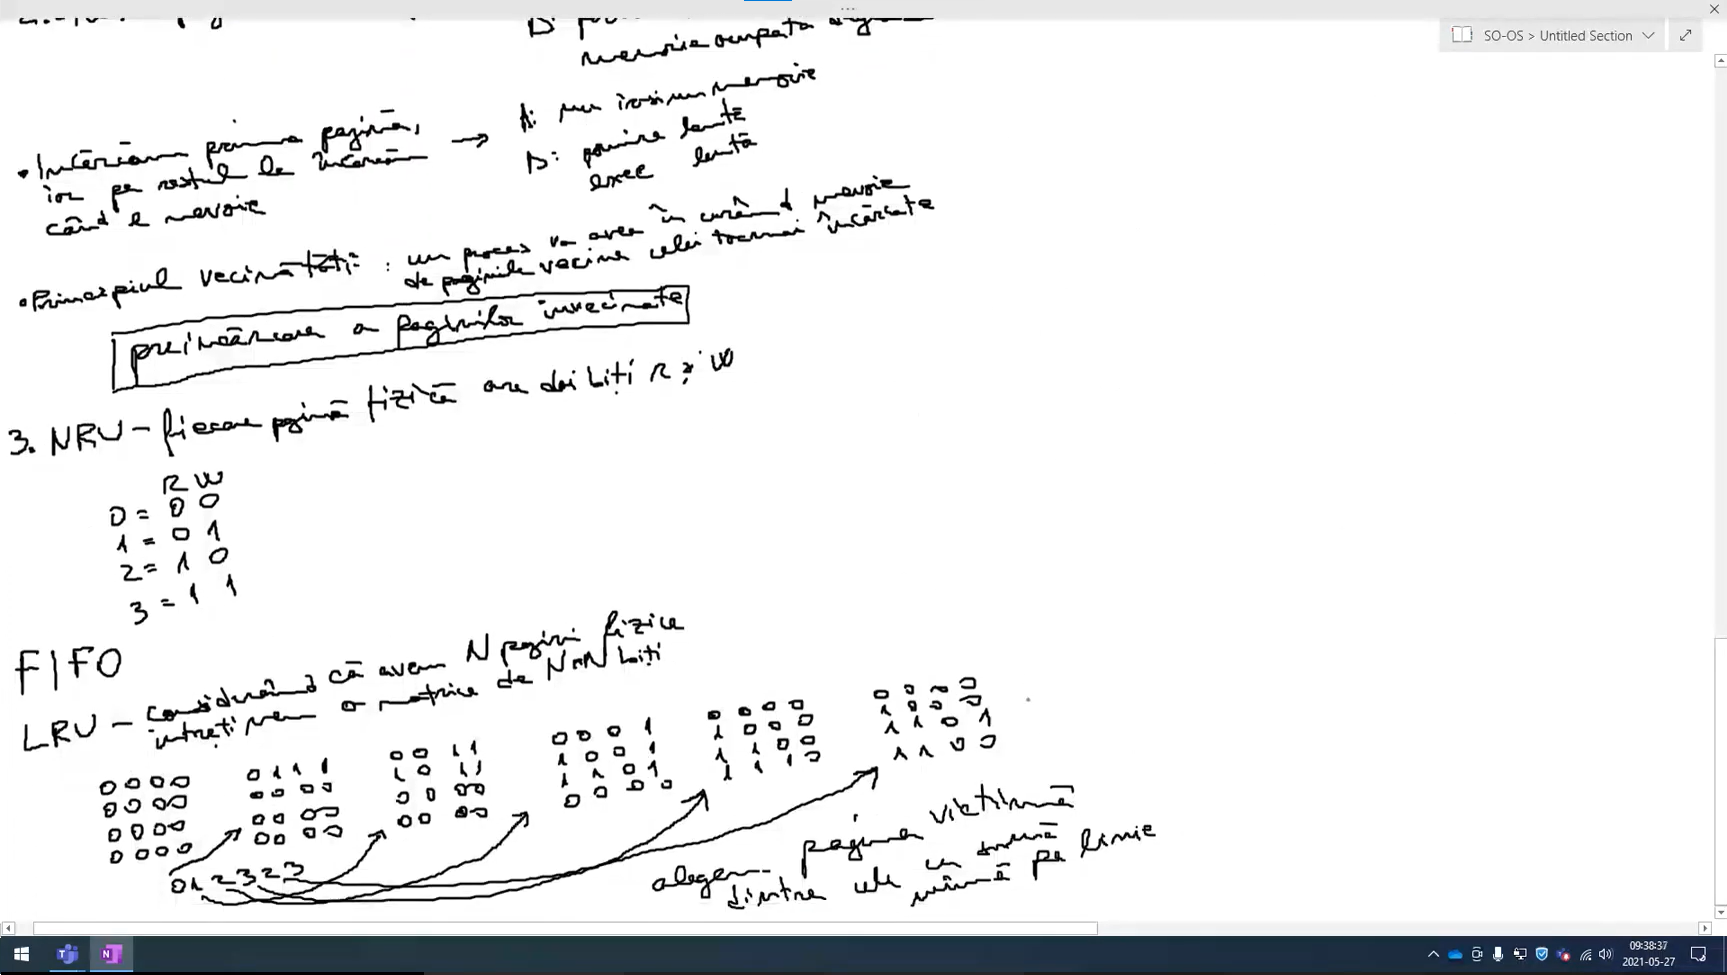 SO-OS > Untitled Section
memorie ocupată
• Încărcăm prima pagină,
iar pe restul le încărcăm
când e nevoie
→
A: nu irosim memorie
D: pornire lentă
exec lentă
• Principiul vecinătății : un proces va avea în curând nevoie
de paginile vecine celei tocmai încărcate
preîncărcare a paginilor învecinate
3. NRU - fiecare pagină fizică are doi biți R și W
R W
0 = 0 0
1 = 0 1
2 = 1 0
3 = 1 1
FIFO
LRU - considerând că avem N pagini fizice
întreținem o matrice de N×N biți
0 0 0 0
0 0 0 0
0 0 0 0
0 0 0 0
0 1 1 1
0 0 0 0
0 0 0 0
0 0 0 0
0 0 1 1
1 0 1 1
0 0 0 0
0 0 0 0
0 0 0 1
1 0 0 1
1 1 0 1
0 0 0 0
0 0 0 0
1 0 0 0
1 1 0 0
1 1 1 0
0 0 0 0
1 0 0 0
1 1 0 1
1 1 0 0
0 1 2 3 2 3
alegem pagina victimă
dintre cele cu sumă
minimă pe linie
09:38:37
2021-05-27